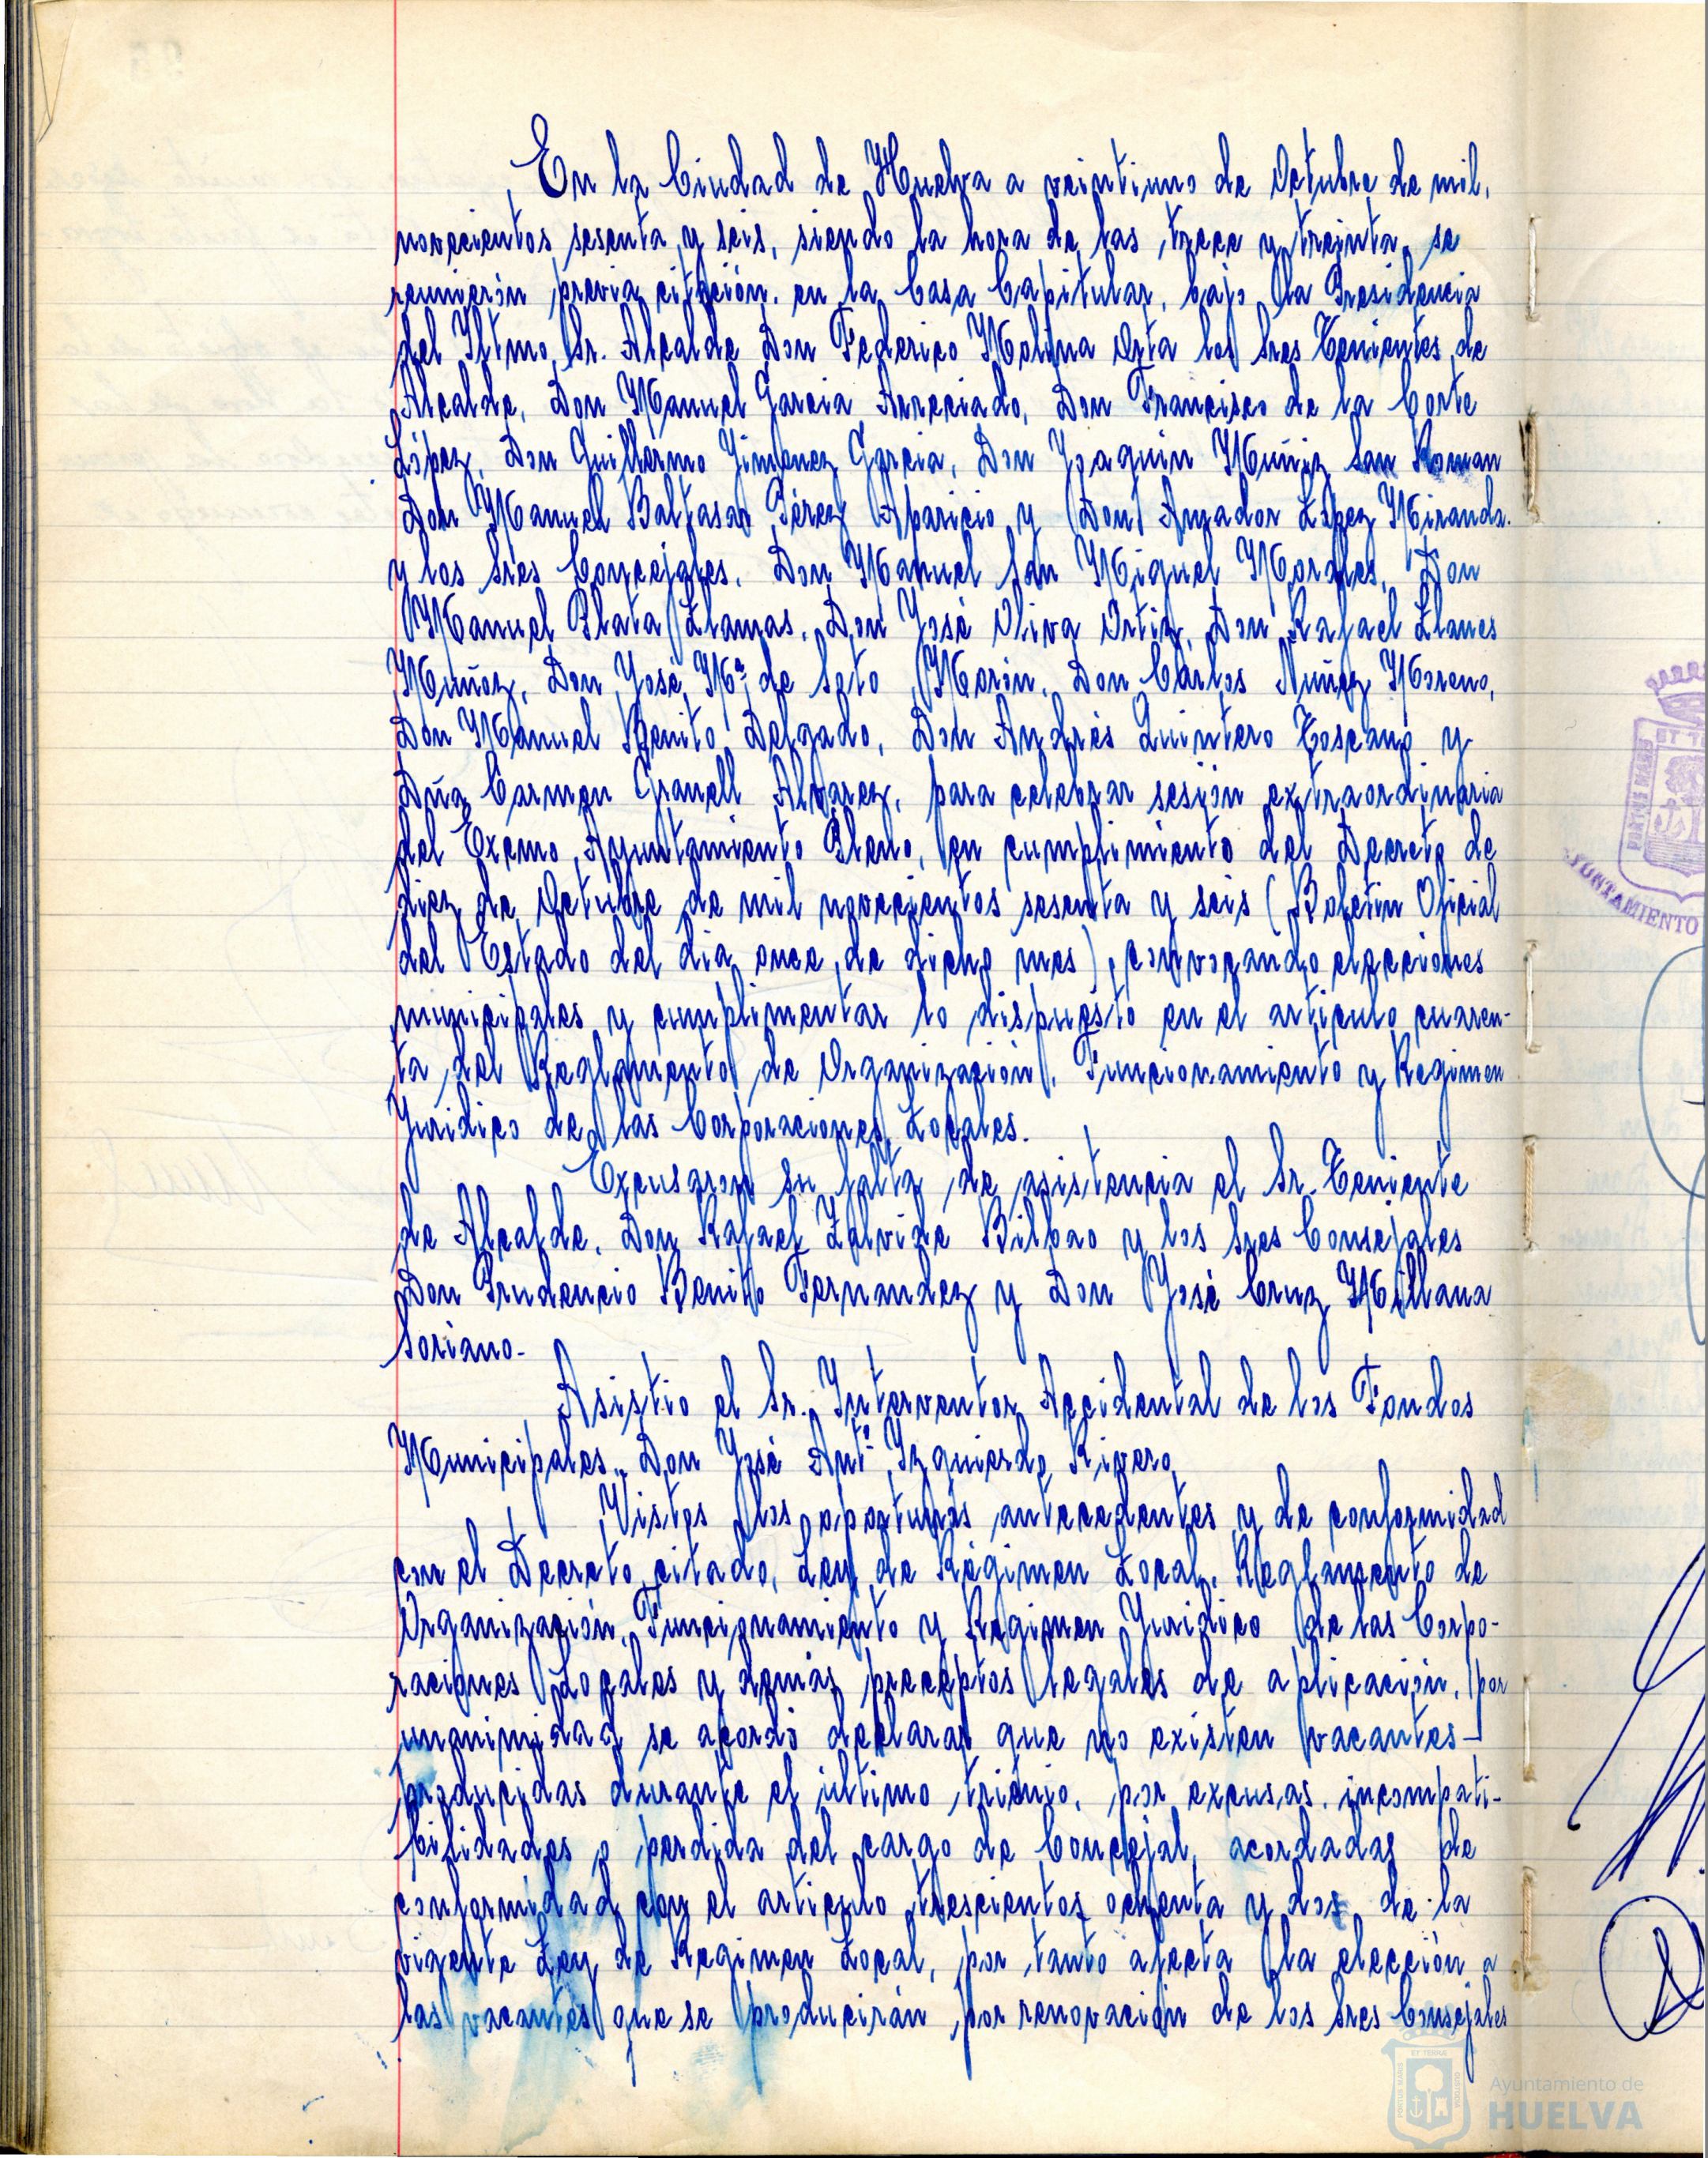 En la Ciudad de Huelva a veintiuno de Octubre de mil,
novecientos sesenta y seis, siendo la hora de las trece y treinta, se
reunierón previa citación, en la Casa Capitular, bajo la Presidencia
del Iltmo Sr. Alcalde Don Federico Molina Orta los Sres Tenientes de
Alcalde, Don Manuel Garcia Arreciado, Don Francisco de la Corte
López, Don Guillermo Jimenez Garcia, Don Joaquin Muñiz San Roman
Don Manuel Baltasar Pérez Aparicio y Don Amador López Miranda.
y los Sres Concejales, Don Manuel San Miguel Morales, Don
Manuel Plata Llamas, Don José Oliva Ortiz, Don Rafael Llanes
Muñoz, Don José Mª de Soto Morón, Don Cárlos Nuñez Moreno,
Don Manuel Benito Delgado, Don Andrés Quintero Toscano y
Dña Carmen Granell Alvarez, para celebrar sesión extraordinaria
del Excmo Ayuntamiento Pleno, en cumplimiento del Decreto de
diez de Octubre de mil novecientos sesenta y seis (Boletin Oficial
del Estado del dia once de dicho mes), convocando elecciones
municipales y cumplimentar lo dispuesto en el articulo cuaren-
ta del Reglamento de Organización, Funcionamiento y Regimen
Juridico de las Corporaciones Locales.
Excusaron su falta de asistencia el Sr. Teniente
de Alcalde, Don Rafael Zalvide Bilbao y los Sres Consejales
Don Prudencio Benito Fernandez y Don José Cruz Millana
Soriano-
Asistio el Sr. Interventor Accidental de los Fondos
Municipales, Don José Antº Izquierdo Rivero,
Vistos los oportunos antecedentes y de conformidad
con el Decreto citado, Ley de Régimen Local, Reglamento de
Organización, Funcionamiento y Regimen Juridico de las Corpo-
raciones Locales y demás preceptos legales de aplicación, por
unanimidad se acordó declarar que no existen vacantes-
producidas durante el último trienio, por excusas, incompati-
bilidades o perdida del cargo de Concejal, acordadas de
conformidad con el articulo trescientos ochenta y dos de la
vigente Ley de Regimen Local, por tanto afecta la elección a
las vacantes que se producirán por renovación de los Sres Consejales
ET TE
PORTUS MARIS
AYUNTAMIENTO
Ayuntamiento de
HUELVA